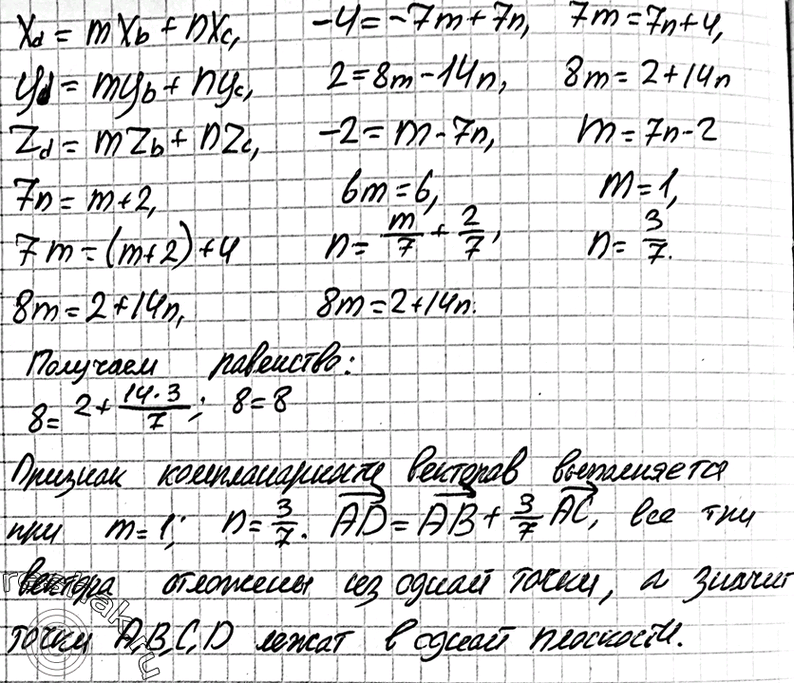 Xd = mXb + nXc,   -4 = -7m + 7n,   7m = 7n + 4,
yd = myb + nyc,   2 = 8m - 14n,   8m = 2 + 14n
Zd = mZb + nZc,   -2 = m - 7n,   m = 7n - 2
7n = m + 2,   6m = 6,   m = 1,
7m = (m + 2) + 4   n = m/7 + 2/7,   n = 3/7.
8m = 2 + 14n,   8m = 2 + 14n.
Получаем равенство:
8 = 2 + 14·3/7; 8 = 8
Признак компланарности векторов выполняется
при m = 1; n = 3/7. AD = AB + 3/7 AC, все три
вектора отложены из одной точки, а значит
точки A,B,C,D лежат в одной плоскости.